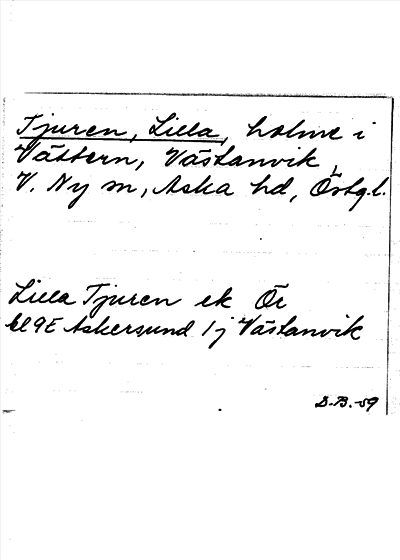 Tjuren, Lilla, holme i
Vättern, Västanvik,
V. Ny sn, Aska hd, Östg.l.
Lilla Tjuren ek Ör
bl 9E Askersund 1j Västanvik
D.B.-59